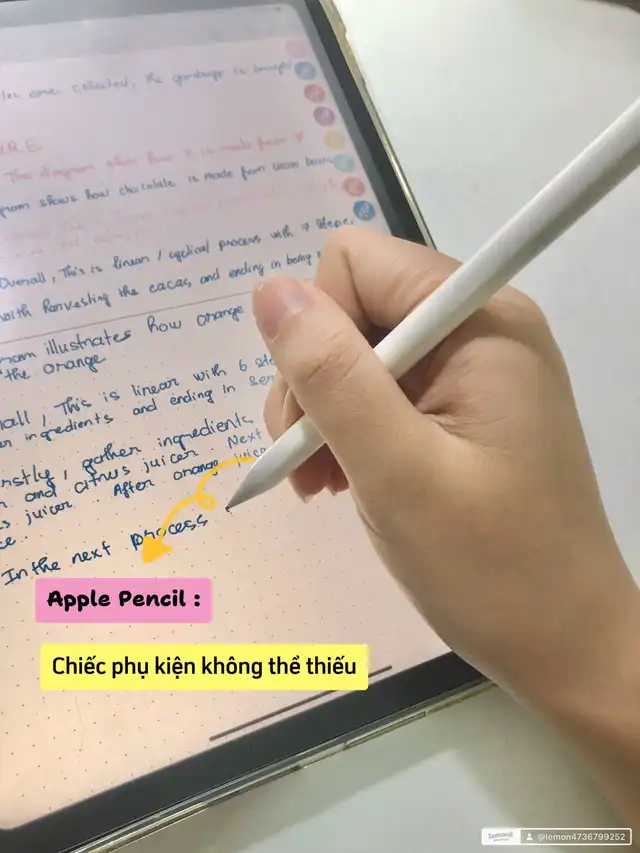 are collected, the garbage is brought
The diagram show how it is made from
gram shows how chocolate is made from cacao bean
Overall, This is linear / cyclical process with 7 steps,
with harvesting the cacao, and ending in being
illustrates how orange
the orange
all, This is linear with 6 ste
ingredients and ending in ser
rstly, gather ingredients
and citrus juicer. Next
juicer. After orange juice
ce.
In the next process
Apple Pencil :
Chiếc phụ kiện không thể thiếu
@lemon4736799252